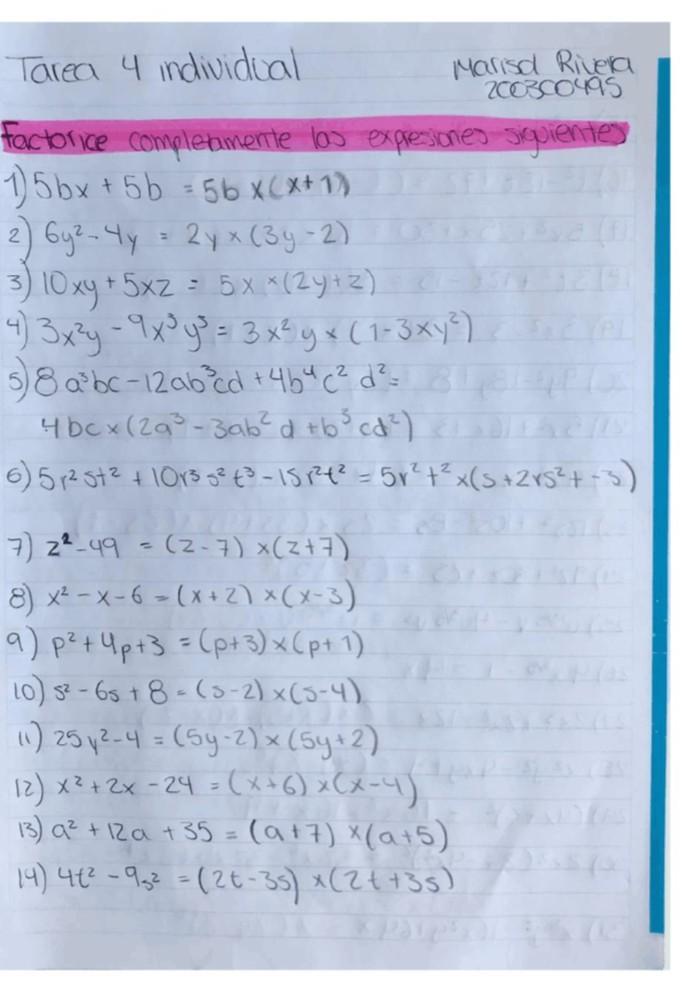 Tarea 4 individual
Marisol Rivera
200300495
Factorice completamente las expresiones siguientes
1) 5bx + 5b = 5b x(x+1)
2) 6y² - 4y = 2y x (3y - 2)
3) 10xy + 5xz = 5x x(2y+z)
4) 3x²y - 9x³y³ = 3x²y x (1-3xy²)
5) 8a³bc - 12ab³cd + 4b⁴c²d² =
4bc x (2a³ - 3ab²d + b³cd²)
6) 5r²st² + 10r³s²t³ - 15r²t² = 5r²t² x(s+2rs²t-3)
7) z² - 49 = (z-7) x(z+7)
8) x² - x - 6 = (x+2) x(x-3)
9) p² + 4p+3 = (p+3)x(p+1)
10) s² - 6s + 8 = (s-2) x(s-4)
11) 25y² - 4 = (5y-2) x (5y+2)
12) x² + 2x - 24 = (x+6) x(x-4)
13) a² + 12a + 35 = (a+7) x(a+5)
14) 4t² - 9s² = (2t-3s) x(2t+3s)